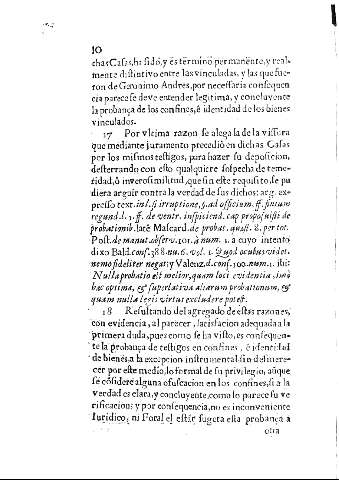 10
chas Casas, ha sido, y es termino permanẽnte, y real-
mente distintivo entre las vinculadas, y las que fue-
ron de Geronimo Andres, por necessaria consequen
cia parece se deve entender legitima, y concluyente
la probança de los confines, è identidad de los bienes
vinculados.
17 Por vltima razon se alega la de la vissura
que mediante juramento precediò en dichas Casas
por los mismos testigos, para hazer su deposicion,
desterrando con esto qualquiere sospecha de teme-
ridad, ò inverosimilitud, que sin este requisito, se pu
diera arguir contra la verdad de sus dichos: arg. ex-
presso text. in l. si irruptione, §. ad officium. ff. finium
regund. l. 1. ff. de ventr. inspiciend. cap. proposuisti de
probationib. latè Mascard. de probat. quæst. 8. per tot.
Post. de manut. observ. 101. à num. 1. a cuyo intento
dixo Bald. conf. 388. nu. 6. vol. 1. Quod oculus videt,
nemo fideliter negat; y Valenz. d. conf. 100. num. 1. ibi:
Nulla probatio est melior, quam loci evidentia, imò
hæc optima, & superlativa aliarum probationum, &
quam nulla legis virtus excludere potest.
18 Resultando del agregado de estas razones,
con evidencia, al parecer, satisfacion adequada a la
primera duda, pues como se ha visto, es consequen-
te la probança de testigos en confines, è identidad
de bienes, a la excepcion instrumental sin desmere-
cer por este medio, lo formal de su privilegio, aũque
se cõsidere alguna ofuscacion en los confines, si a la
verdad es clara, y concluyente, como lo parece su ve
rificacion; y por consequencia, no es inconveniente
Iuridico, ni Foral el estàr sugeta esta probança a
otra